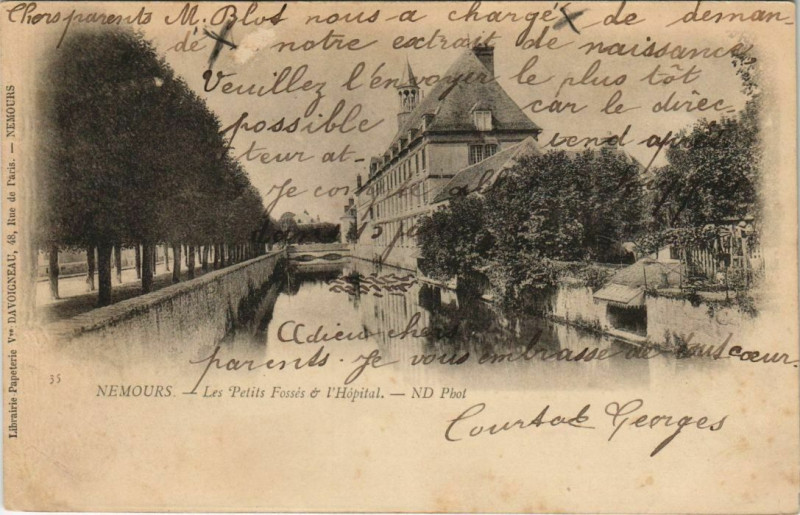 Chers parents M. Blot nous a chargé de deman-
dé notre extrait de naissance
Veuillez l'envoyer le plus tôt
possible car le direc-
teur at- tend après
Je
Adieu chers
parents. Je vous embrasse de tout cœur.
35
NEMOURS. — Les Petits Fossés & l'Hôpital. — ND Phot
Courtat Georges
Librairie Papeterie Vve DAVOIGNEAU, 48, Rue de Paris. — NEMOURS